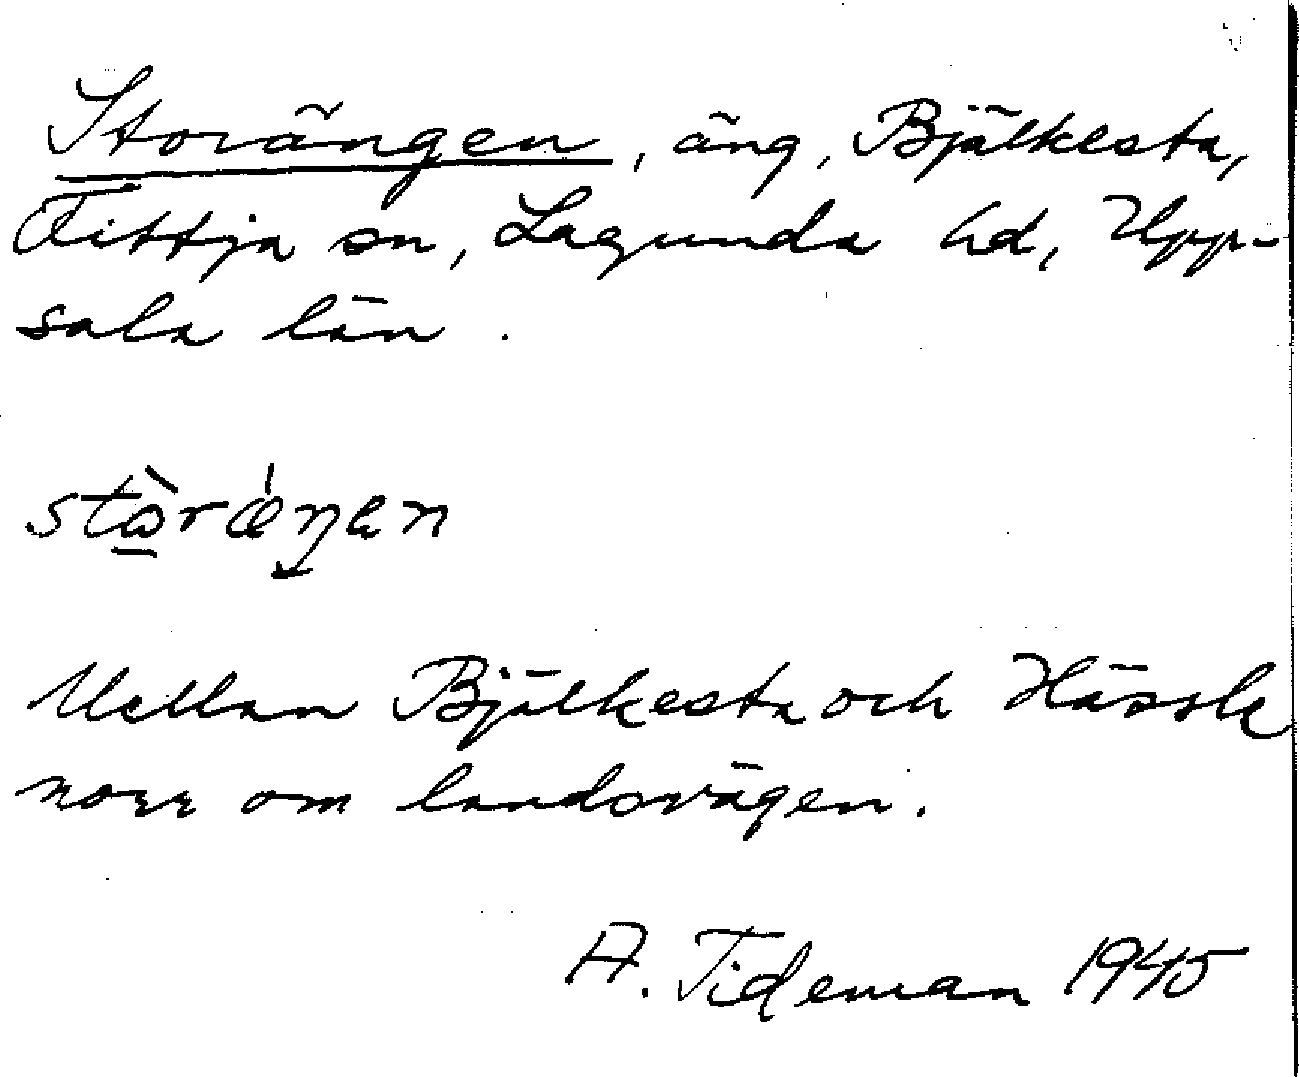 Storängen, äng, Bjälkesta,
Fittja sn, Lagunda hd, Upp-
sala län.
stὼ̱ràeŋen
Mellan Bjälkesta och Hässle
norr om landsvägen.
A. Tideman 1945